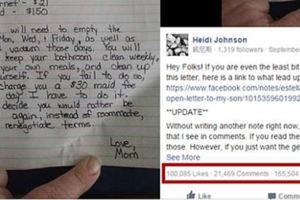 ernet - $21
d - $150
will need to empty the
Mon, Wed, Friday, as well as
those days. You will
keep your bathroom clean weekly,
own and clean up
yourself. If you fail to do so,
charge you a $30 maid fee
day I have to do it.
decide you would rather be
again, instead of roommate,
negotiate terms.
Love,
Mom
Heidi Johnson
1,319 followers · September
Hey Folks! If you are even the least bit
this letter, here is a link to what lead up
https://www.facebook.com/notes/estell
open-letter-to-my-son/1015359601992
**UPDATE**
Without writing another note right now,
that I see in comments. If you read the
those. However, if you just want the ge
See More
100,085 Likes · 21,469 Comments · 165,504
Like